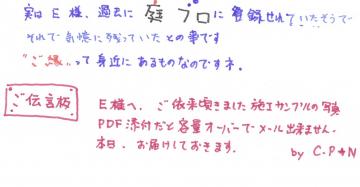 実はE様、過去に庭プロに登録せれていたそうで
それで記憶に残っていたとの事です
"ご縁"って身近にあるものなのですネ。
ご伝言板
E様へ、ご依来頃きました施工サンプルの写真
PDF添付だと容量オーバーでメール出来ません。
本日、お届けしておきます。
by C.P★N